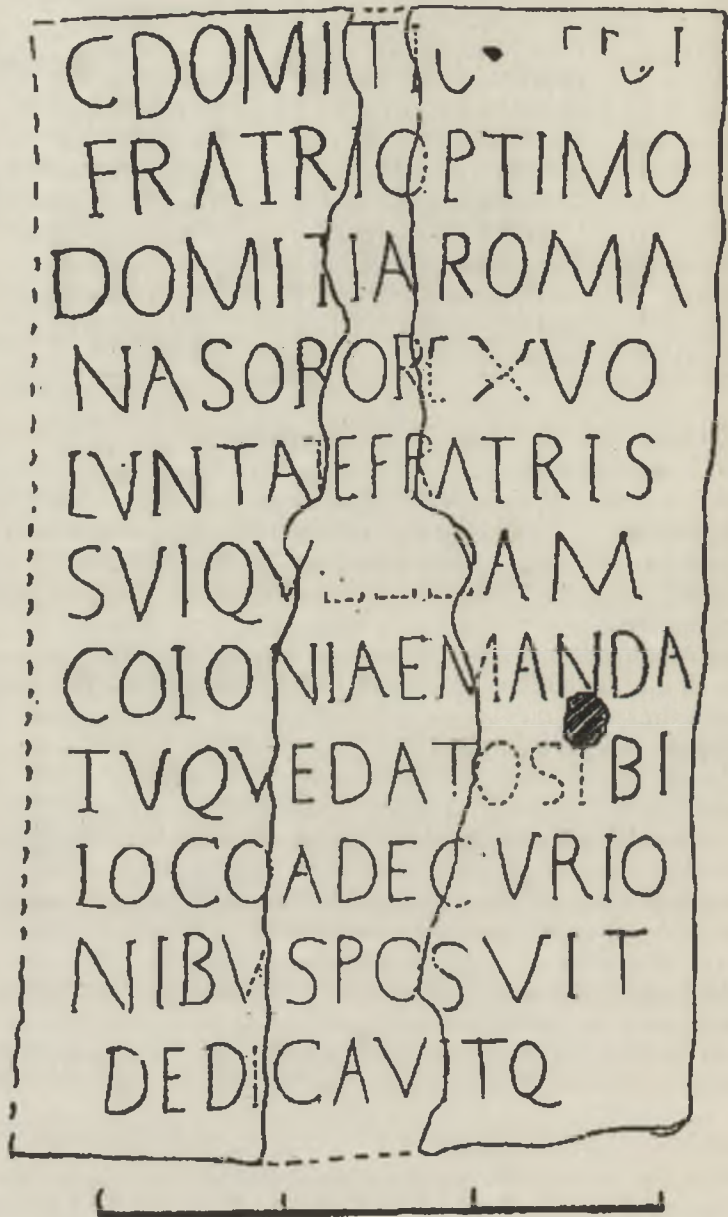 CDOMITI
FRATRIOPTIMO
DOMITIAROMA
NASOROREXVO
LVNTATEFRATRIS
SVIQV AM
COIONIAEMANDA
TVQVEDATOSIBI
LOCOADECVRIO
NIBVSPOSVIT
DEDICAVITQ